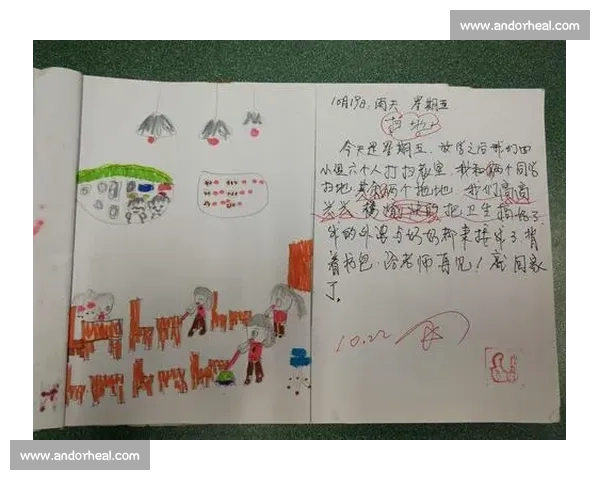 www.andorheal.com
10月19日 雨天 星期五
扫地
今天是星期五，放学之后我们四
小组六个人打扫教室，我和两个同学
扫地其余两个拖地，我们高高
兴兴 把卫生搞好了
年的外婆与奶奶都来接生了背
着书包，给老师再见！就回家
了。
10.22 阅
www.andorheal.com
www.andorheal.com